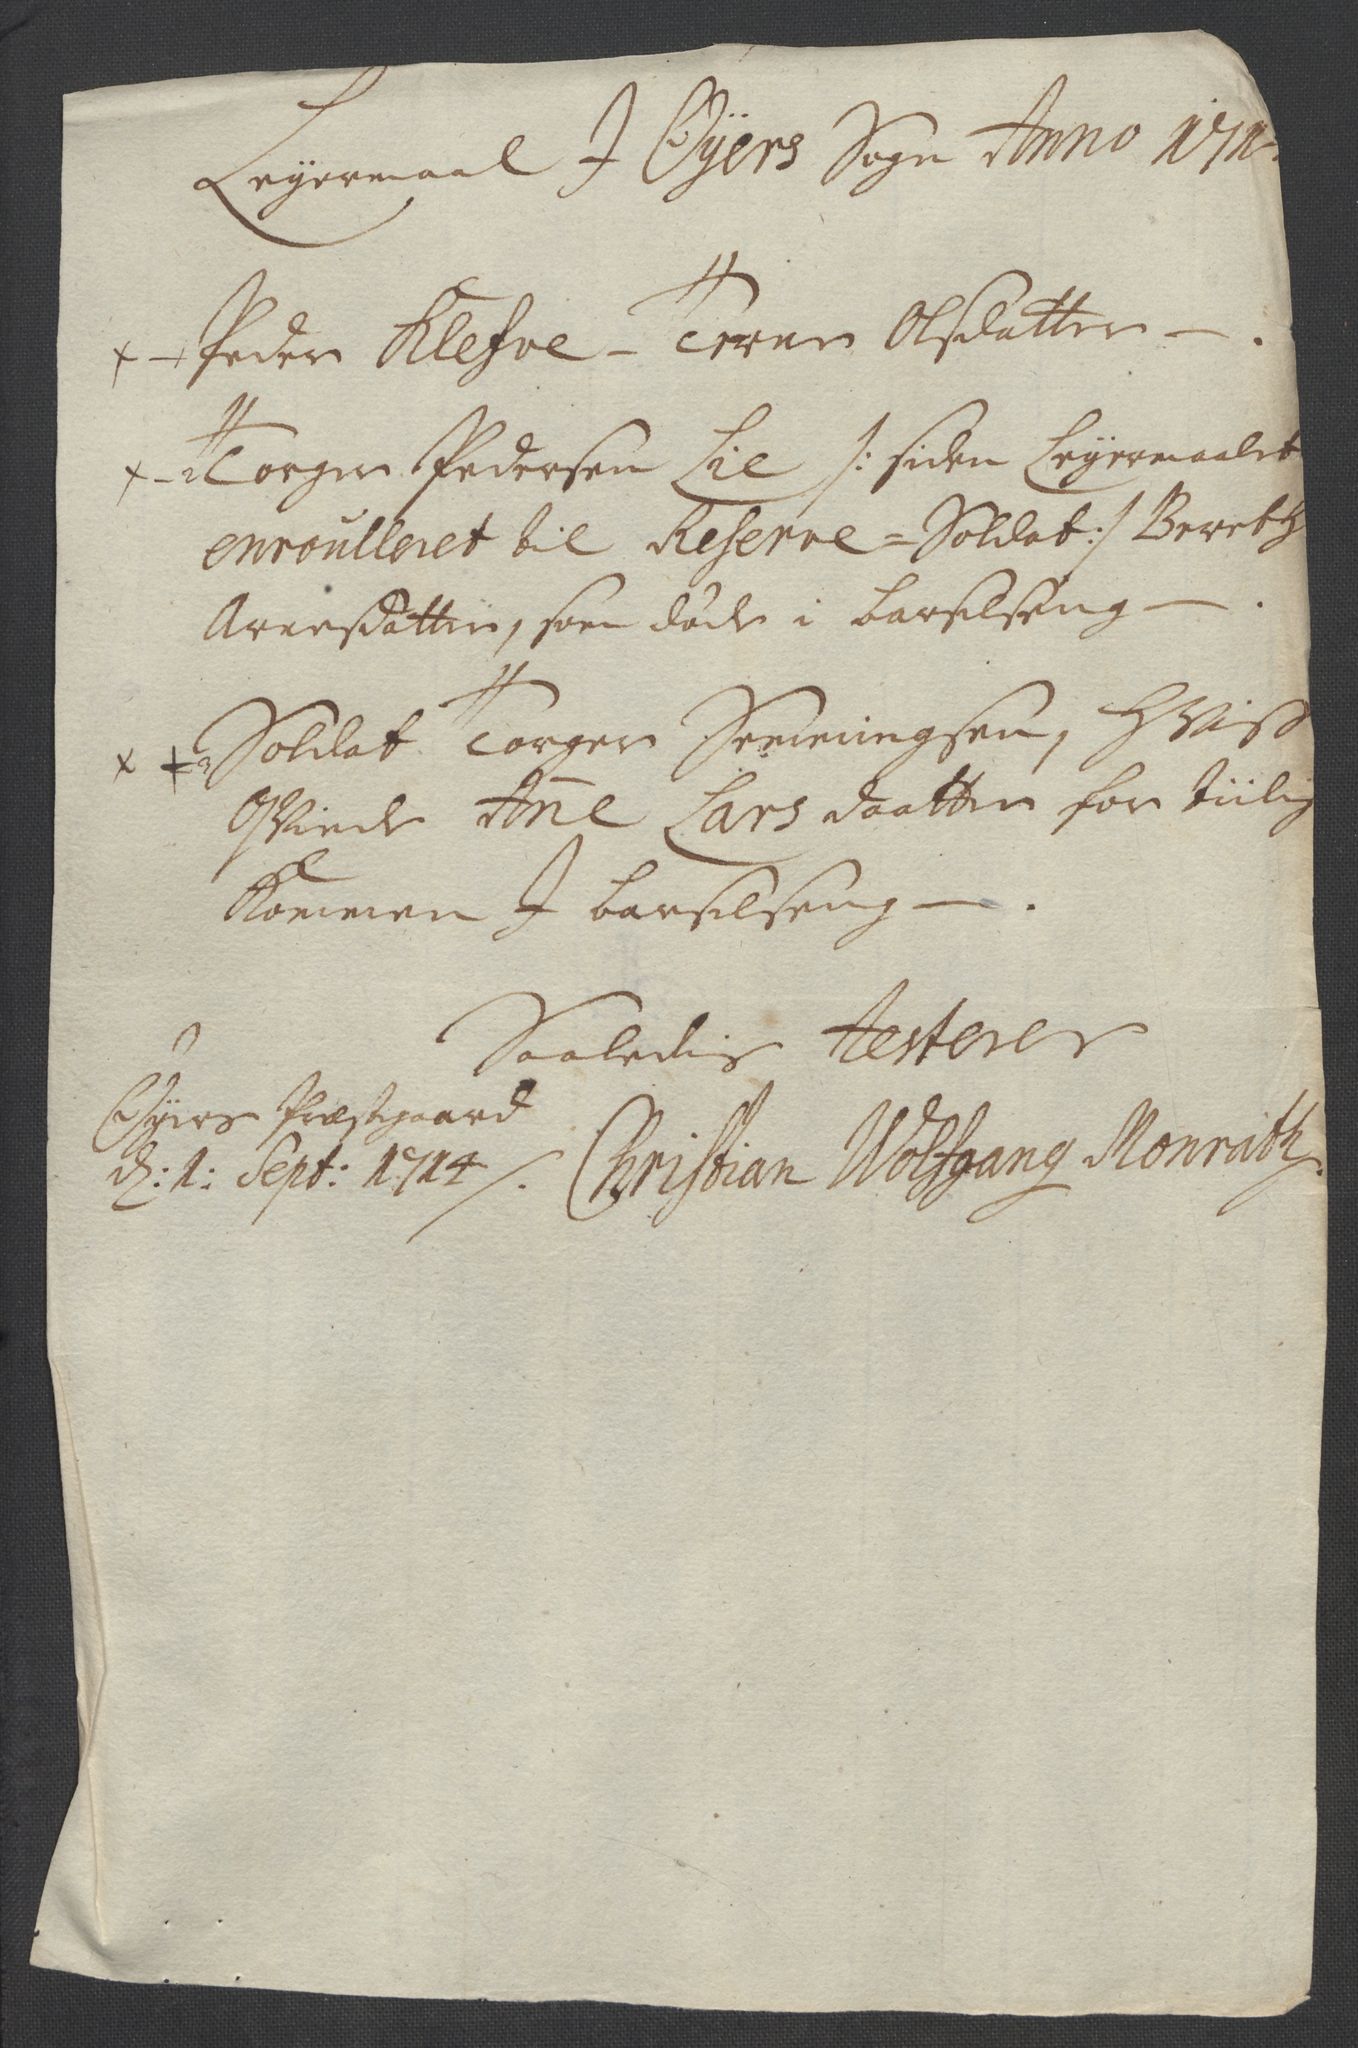 Leyermaal I Øÿers Sogn Anno 171
x - Peder Klefve - Toren Olsdatter - .
x - Torger Pedersen Lie /: siden Leyermaalet
enroulleret til Reserve = Soldat :/ Bereth
Arnesdatter, som døde i barselseng - .
x + Soldat Torger Semmingsen, hviss
Qvinde Añe Larsdaatter for tiilig
kommen I barselseng - .
Saaledis testerer
Øyers Præstgaard
d: 1: Sept: 1714 /. Christian Wolfgang Monrath.